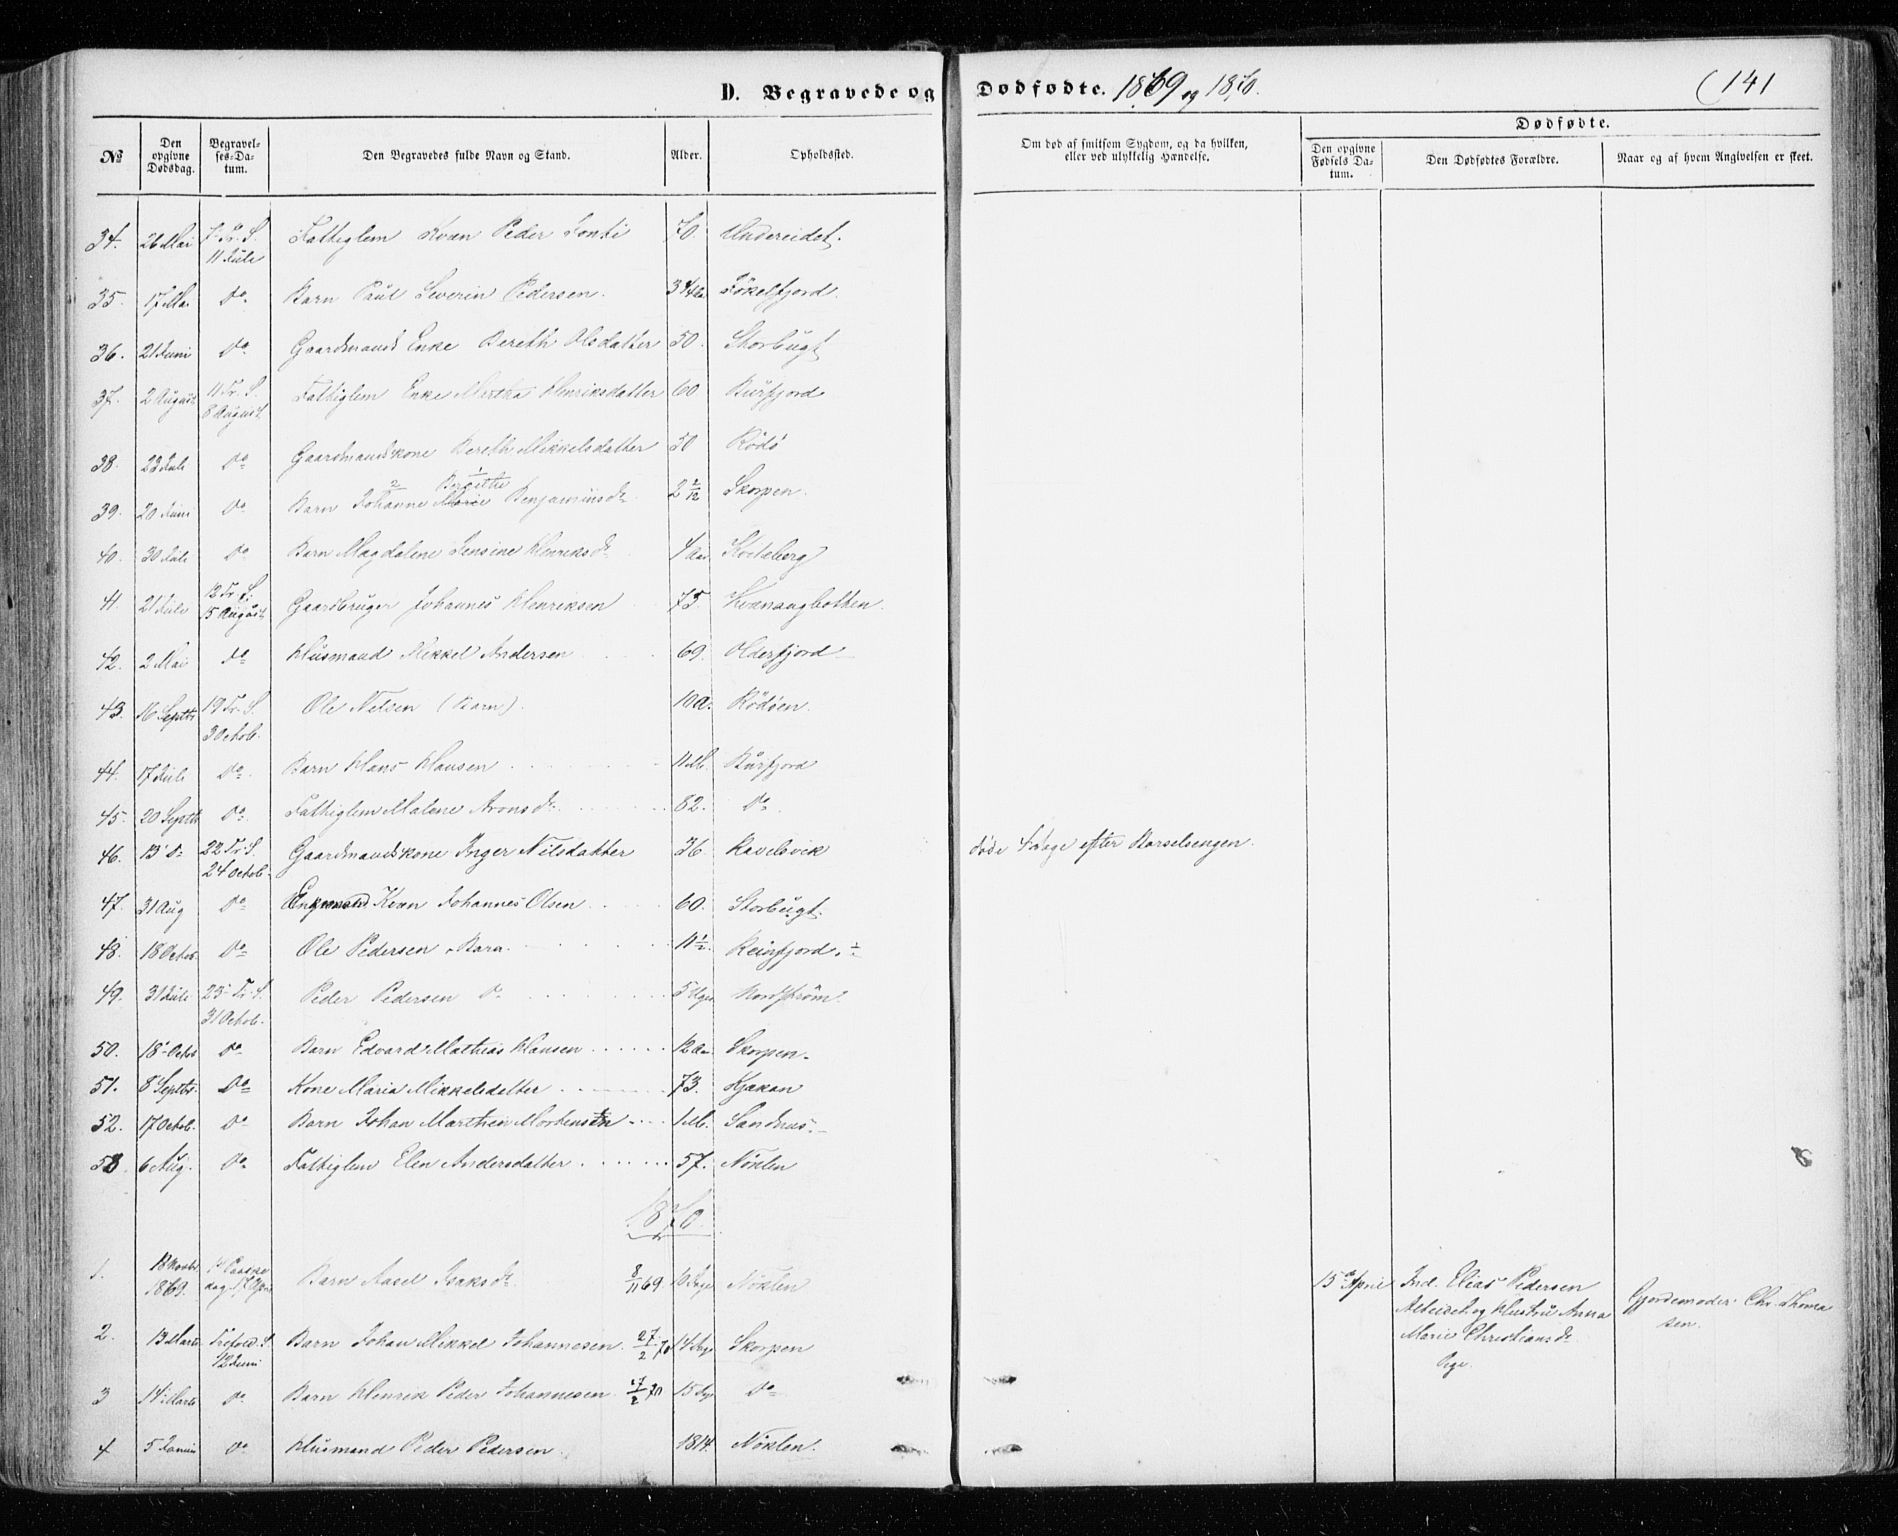 D. Begravede og Dødfødte. 1869 og 1870. 141
№
Den opgivne Dødsdag.
Begravelses-Datum.
Den Begravedes fulde Navn og Stand.
Alder.
Opholdssted.
Om død af smitsom Sygdom, og da hvilken,
eller ved ulykkelig Hændelse.
Dødfødte.
Den opgivne Fødsels Datum.
Den Dødfødtes Forældre.
Naar og af hvem Angivelsen er skeet.
34. 26 Mai 7 Tr. S. 11 Juli Fattiglem Kvæn Peder 70. Undereidet.
35. 17 Mai Do Barn Paul Severin Pedersen. Jøkelfjord.
36. 21 Juni Do Gaardmands Enke Bereth Olsdatter 50. Storbugt
37. 2 August 11 Tr. S. 8 August. Fattiglem Enke Henriksdatter 60 Burfjord
38. 23 Juli Do Gaardmandskone Bereth Mikkelsdatter 50 Rödö
39. 20 Juni Do Barn Johanne Marie Bergitthe Benjaminsdr 2 2/12 Skorpen.
40. 30 Juli Do Barn Magdalene Jensine Henriksdr 4 Aar
41. 21 Juli 12 Tr. S. 15 August Gaardbruger Johannes Henriksen 75. Kvænangbotten.
42. 2 Mai do Husmand Mikkel Andersen 69. Olderfjord
43. 16 Septbr 19 Tr. S. 3 Octob. Ole Nilsen (Barn). 10 A. Rödöen.
44. 17 Juli Do. Barn Hans Hansen 11 M. Burfjord
45. 20 Septbr Do Fattiglem Malene Aronsdr 82. do.
46. 13 do 22 Tr. S. 24 Octob. Gaardmandskone Inger Nilsdatter 36. Ravelsvik døde 4 dage efter Barselsengen.
47. 31 Aug Do Kvæn Johannes Olsen 60. Storbugt.
48. 18 Octob. Do Ole Pedersen. Barn. 11 1/2. Reinfjord.
49. 31 Juli 23 Tr. S. 31 Octob. Peder Pedersen do 5 Uger Nordström.
50. 18 Octob do Barn Edvard Mathias Hansen 12 Aar Skorpen.
51. 8 Septbr. Do Kone Maria Mikkelsdatter 73. Kjækan
52. 17 Octob. Do Barn Johan Marthin Mortensen 1 M. Sandnes.
53 6 Aug. Do Fattiglem Elen Andersdatter 57. Nöklen
1870.
1. 18 Novbr 1869. Paaskedag 17 April Barn Aasel Isaksdr 8/11 69 10 Dage Nöklen 15 April Ind. Elias Pedersen
Alteidet og Hustru Anna
Marie Christiansdr
Pige.
Gjordemoder Chr. Thomasen.
2. 13 Marts Trefold. S. 12 Juni Barn Johan Mikkel Johannesen. 27/2 70 14 Dage Skorpen
3 14 Marts do Barn Henrik Peder Johannesen 27/2 70 15 Dage Do
4 5 do Husmand Peder Pedersen. 1814. Nöklen.